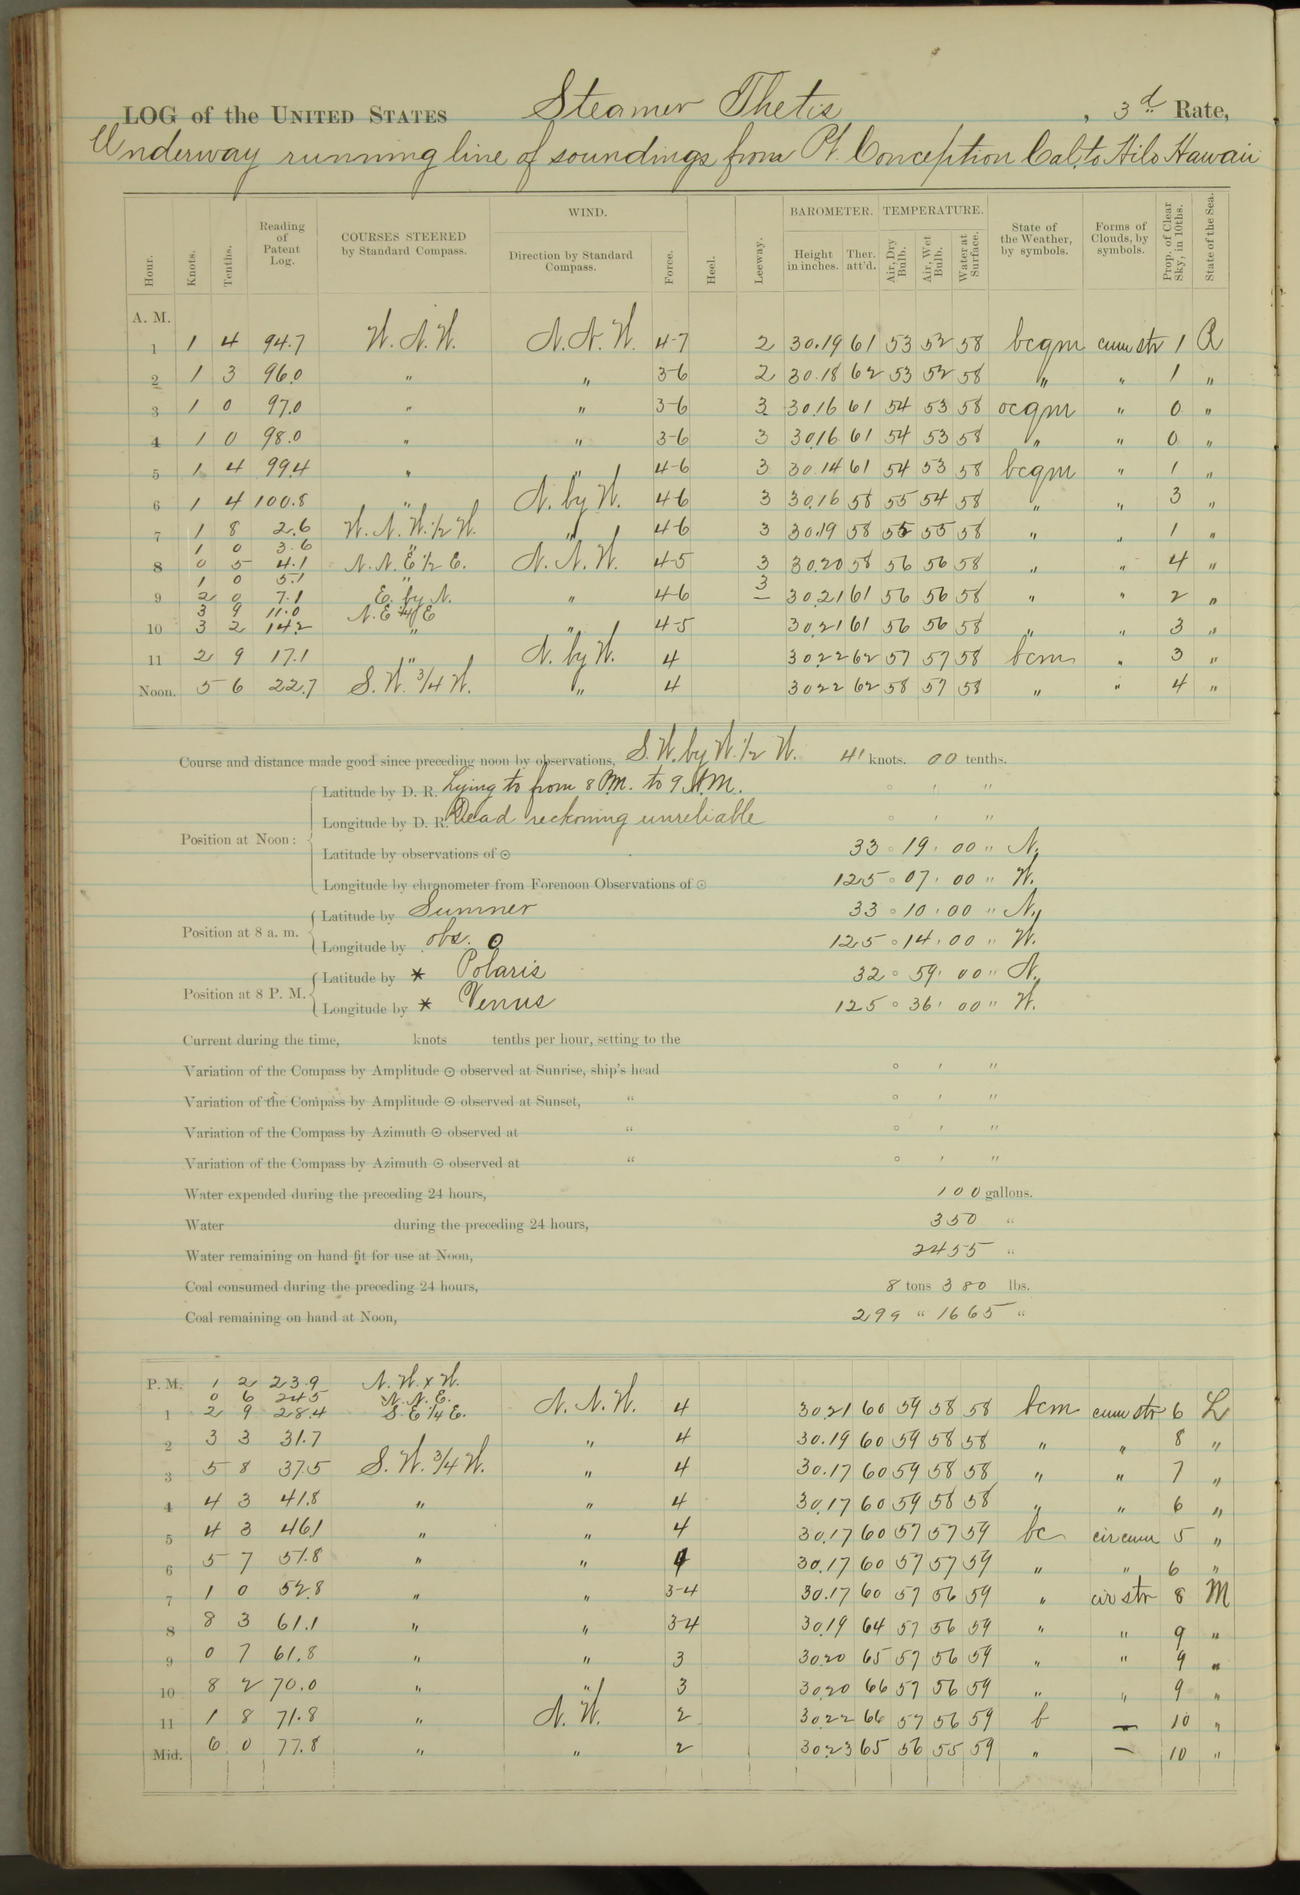 LOG of the UNITED STATES Steamer Thetis, 3d Rate,
Underway running line of soundings from Pt. Conception Cal. to Hilo Hawaii
Hour. Knots. Tenths. Reading of Patent Log. COURSES STEERED by Standard Compass. WIND. Direction by Standard Compass. Force. Heel. Leeway. BAROMETER. Height in inches. Ther. att'd. TEMPERATURE. Air, Dry Bulb. Air, Wet Bulb. Water at Surface. State of the Weather, by symbols. Forms of Clouds, by symbols. Prop. of Clear Sky, in 10ths. State of the Sea.
A. M.
1 1 4 94.7 W. N. W. N. N. W. 4-7 2 30.19 61 53 52 58 bcqm cum str 1 R
2 1 3 96.0 " " 3-6 2 30.18 62 53 52 58 " " 1 "
3 1 0 97.0 " " 3-6 3 30.16 61 54 53 58 ocqm " 0 "
4 1 0 98.0 " " 3-6 3 30.16 61 54 53 58 " " 0 "
5 1 4 99.4 " " 4-6 3 30.14 61 54 53 58 bcqm " 1 "
6 1 4 100.8 " N. by W. 4-6 3 30.16 58 55 54 58 " " 3 "
7 1 8 2.6 W. N. W. 1/2 W. " 4-6 3 30.19 58 55 55 58 " " 1 "
1 0 3.6 "
8 0 5 4.1 N. N. E 1/2 E. N. N. W. 4-5 3 30.20 58 56 56 58 " " 4 "
1 0 5.1 "
9 2 0 7.1 E. by N. " 4-6 3 30.21 61 56 56 58 " " 2 "
3 9 11.0 N. E 1/4 E
10 3 2 14.2 " " 4-5 30.21 61 56 56 58 " " 3 "
11 2 9 17.1 " N. by W. 4 30.22 62 57 57 58 bcm " 3 "
Noon. 5 6 22.7 S. W. 3/4 W. " 4 30.22 62 58 57 58 " " 4 "
Course and distance made good since preceding noon by observations, S. W. by W. 1/2 W. 41 knots. 00 tenths.
Latitude by D. R. Lying to from 8 P.M. to 9 A.M. ° ' "
Longitude by D. R. Dead reckoning unreliable ° ' "
Position at Noon:
Latitude by observations of ☉ 33 ° 19 ' 00 " N.
Longitude by chronometer from Forenoon Observations of ☉ 125 ° 07 ' 00 " W.
Position at 8 a. m. Latitude by Sumner 33 ° 10 ' 00 " N.
Longitude by obs. O 125 ° 14 ' 00 " W.
Position at 8 P. M. Latitude by * Polaris 32 ° 59 ' 00 " N.
Longitude by * Venus 125 ° 36 ' 00 " W.
Current during the time, knots tenths per hour, setting to the
Variation of the Compass by Amplitude ☉ observed at Sunrise, ship's head ° ' "
Variation of the Compass by Amplitude ☉ observed at Sunset, " ° ' "
Variation of the Compass by Azimuth ☉ observed at " ° ' "
Variation of the Compass by Azimuth ☉ observed at " ° ' "
Water expended during the preceding 24 hours, 100 gallons.
Water during the preceding 24 hours, 350 "
Water remaining on hand fit for use at Noon, 2455 "
Coal consumed during the preceding 24 hours, 8 tons 380 lbs.
Coal remaining on hand at Noon, 299 " 1665 "
P. M. 1 2 23.9 N. W. x W.
0 6 24.5 N. N. E.
1 2 9 28.4 S. E 1/4 E. N. N. W. 4 30.21 60 59 58 58 bcm cum str 6 L
2 3 3 31.7 " 4 30.19 60 59 58 58 " " 8 "
3 5 8 37.5 S. W. 3/4 W. " 4 30.17 60 59 58 58 " " 7 "
4 4 3 41.8 " " 4 30.17 60 59 58 58 " " 6 "
5 4 3 46.1 " " 4 30.17 60 57 57 59 bc cir cum 5 "
6 5 7 51.8 " " 4 30.17 60 57 57 59 " " 6 "
7 1 0 52.8 " " 3-4 30.17 60 57 56 59 " cir str 8 M
8 8 3 61.1 " " 3-4 30.19 64 57 56 59 " " 9 "
9 0 7 61.8 " " 3 30.20 65 57 56 59 " " 9 "
10 8 2 70.0 " " 3 30.20 66 57 56 59 " " 9 "
11 1 8 71.8 " N. W. 2 30.22 66 57 56 59 b — 10 "
Mid. 6 0 77.8 " " 2 30.23 65 56 55 59 " — 10 "